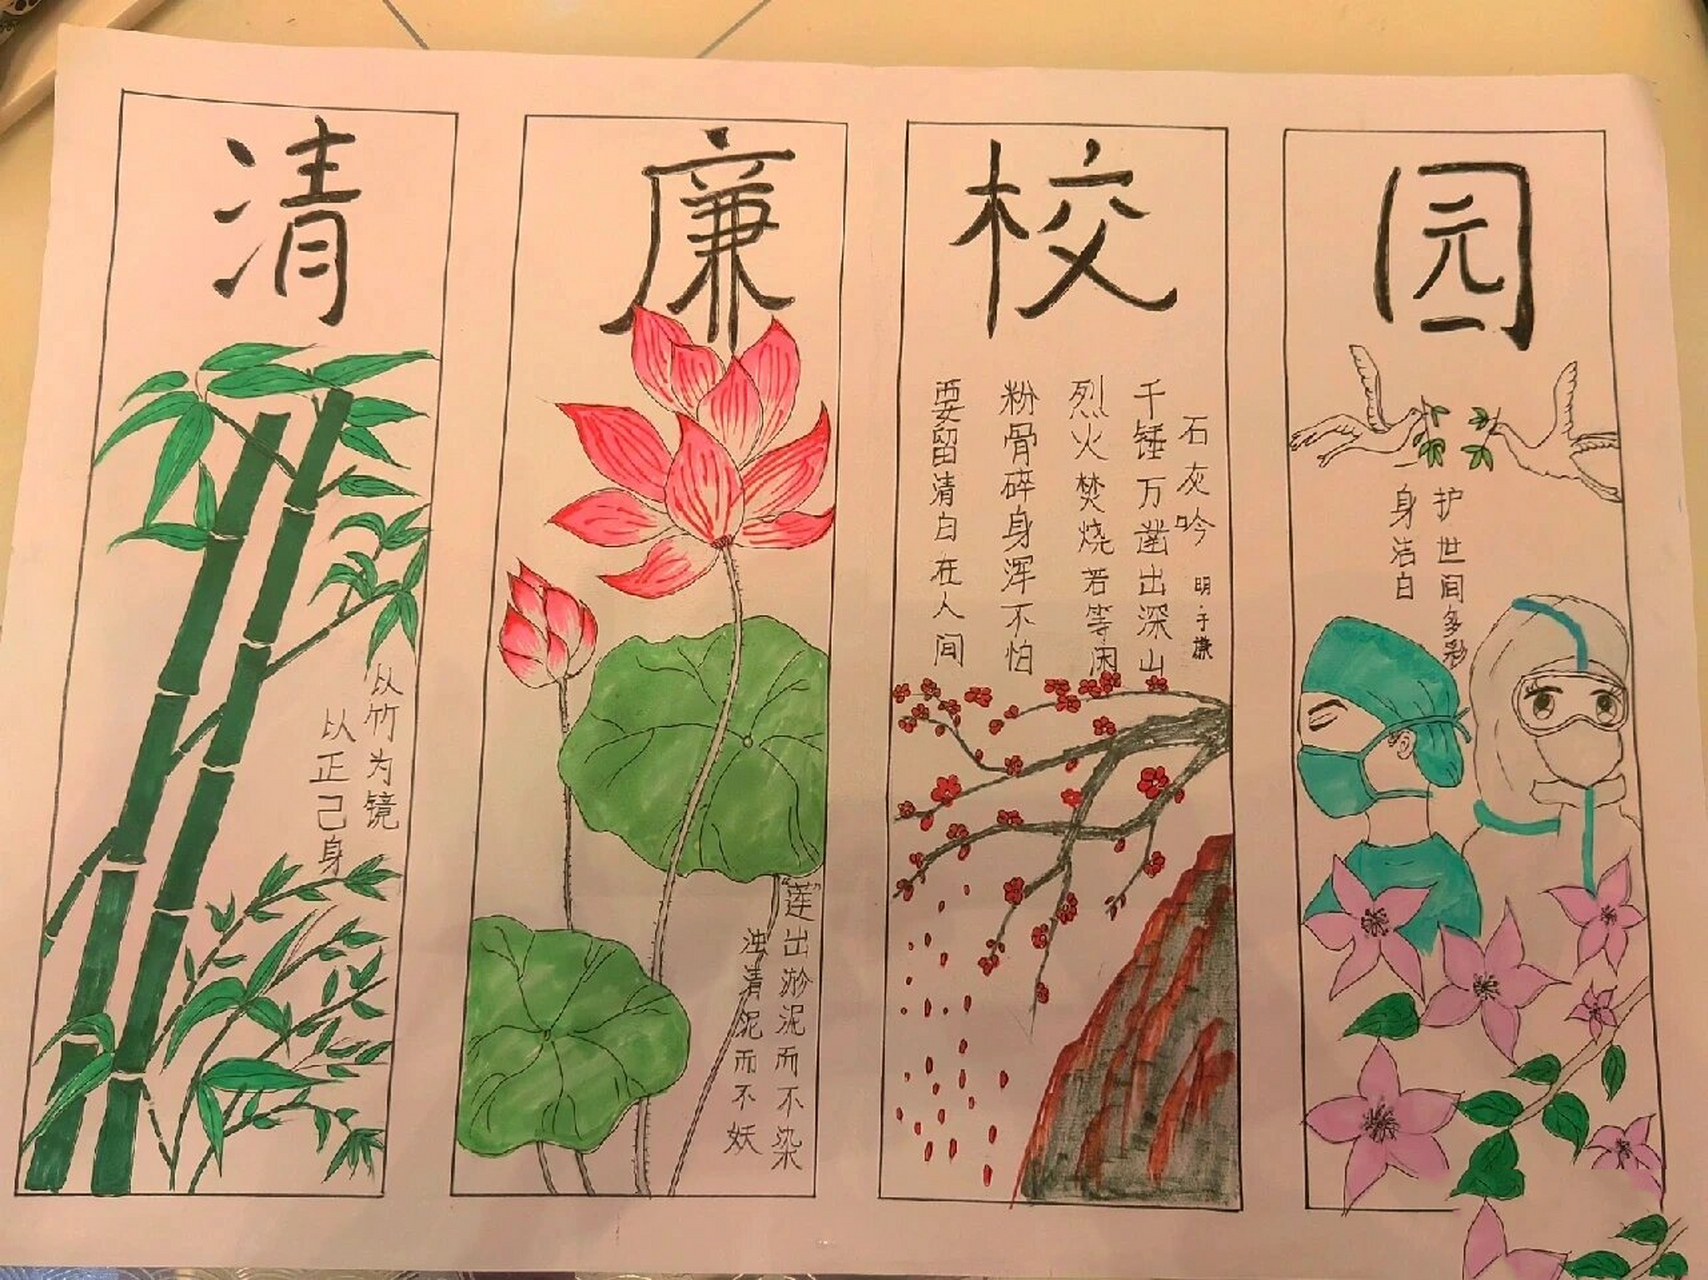 清
以竹为镜
以正己身
廉
“莲”出淤泥而不染
浊清泥而不妖
校
石灰吟 明·于谦
千锤万凿出深山
烈火焚烧若等闲
粉骨碎身浑不怕
要留清白在人间
园
护世间多彩
一身洁白